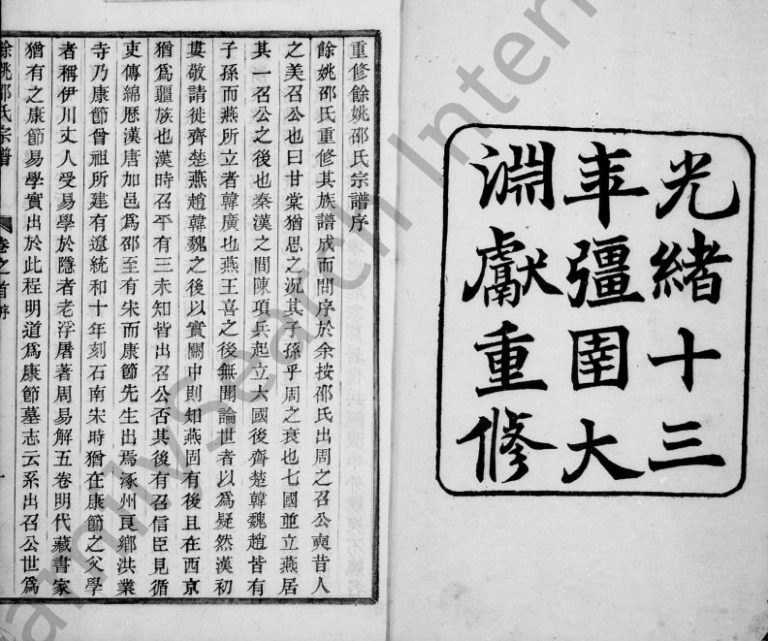 光緒十三
年彊圉大
淵獻重修
重修餘姚邵氏宗譜序
餘姚邵氏重修其族譜成而問序於余按邵氏出周之召公奭昔人
之美召公也曰甘棠猶思之況其子孫乎周之衰也七國並立燕居
其一召公之後也秦漢之間陳項兵起立六國後齊楚韓魏趙皆有
子孫而燕所立者韓廣也燕王喜之後無聞論世者以為疑然漢初
婁敬請徙齊楚燕趙韓魏之後以實關中則知燕固有後且在西京
猶為彊族也漢時召平有三未知皆出召公否其後有召信臣見循
吏傳綿歷漢唐加邑為邵至有宋而康節先生出焉涿州良鄉洪業
寺乃康節曾祖所建有遼統和十年刻石南宋時猶在康節之父學
者稱伊川丈人受易學於隱者老浮屠著周易解五卷明代藏書家
猶有之康節易學實出於此程明道為康節墓志云系出召公世為
餘姚邵氏宗譜 卷之首序 一
FamilySearch Intern